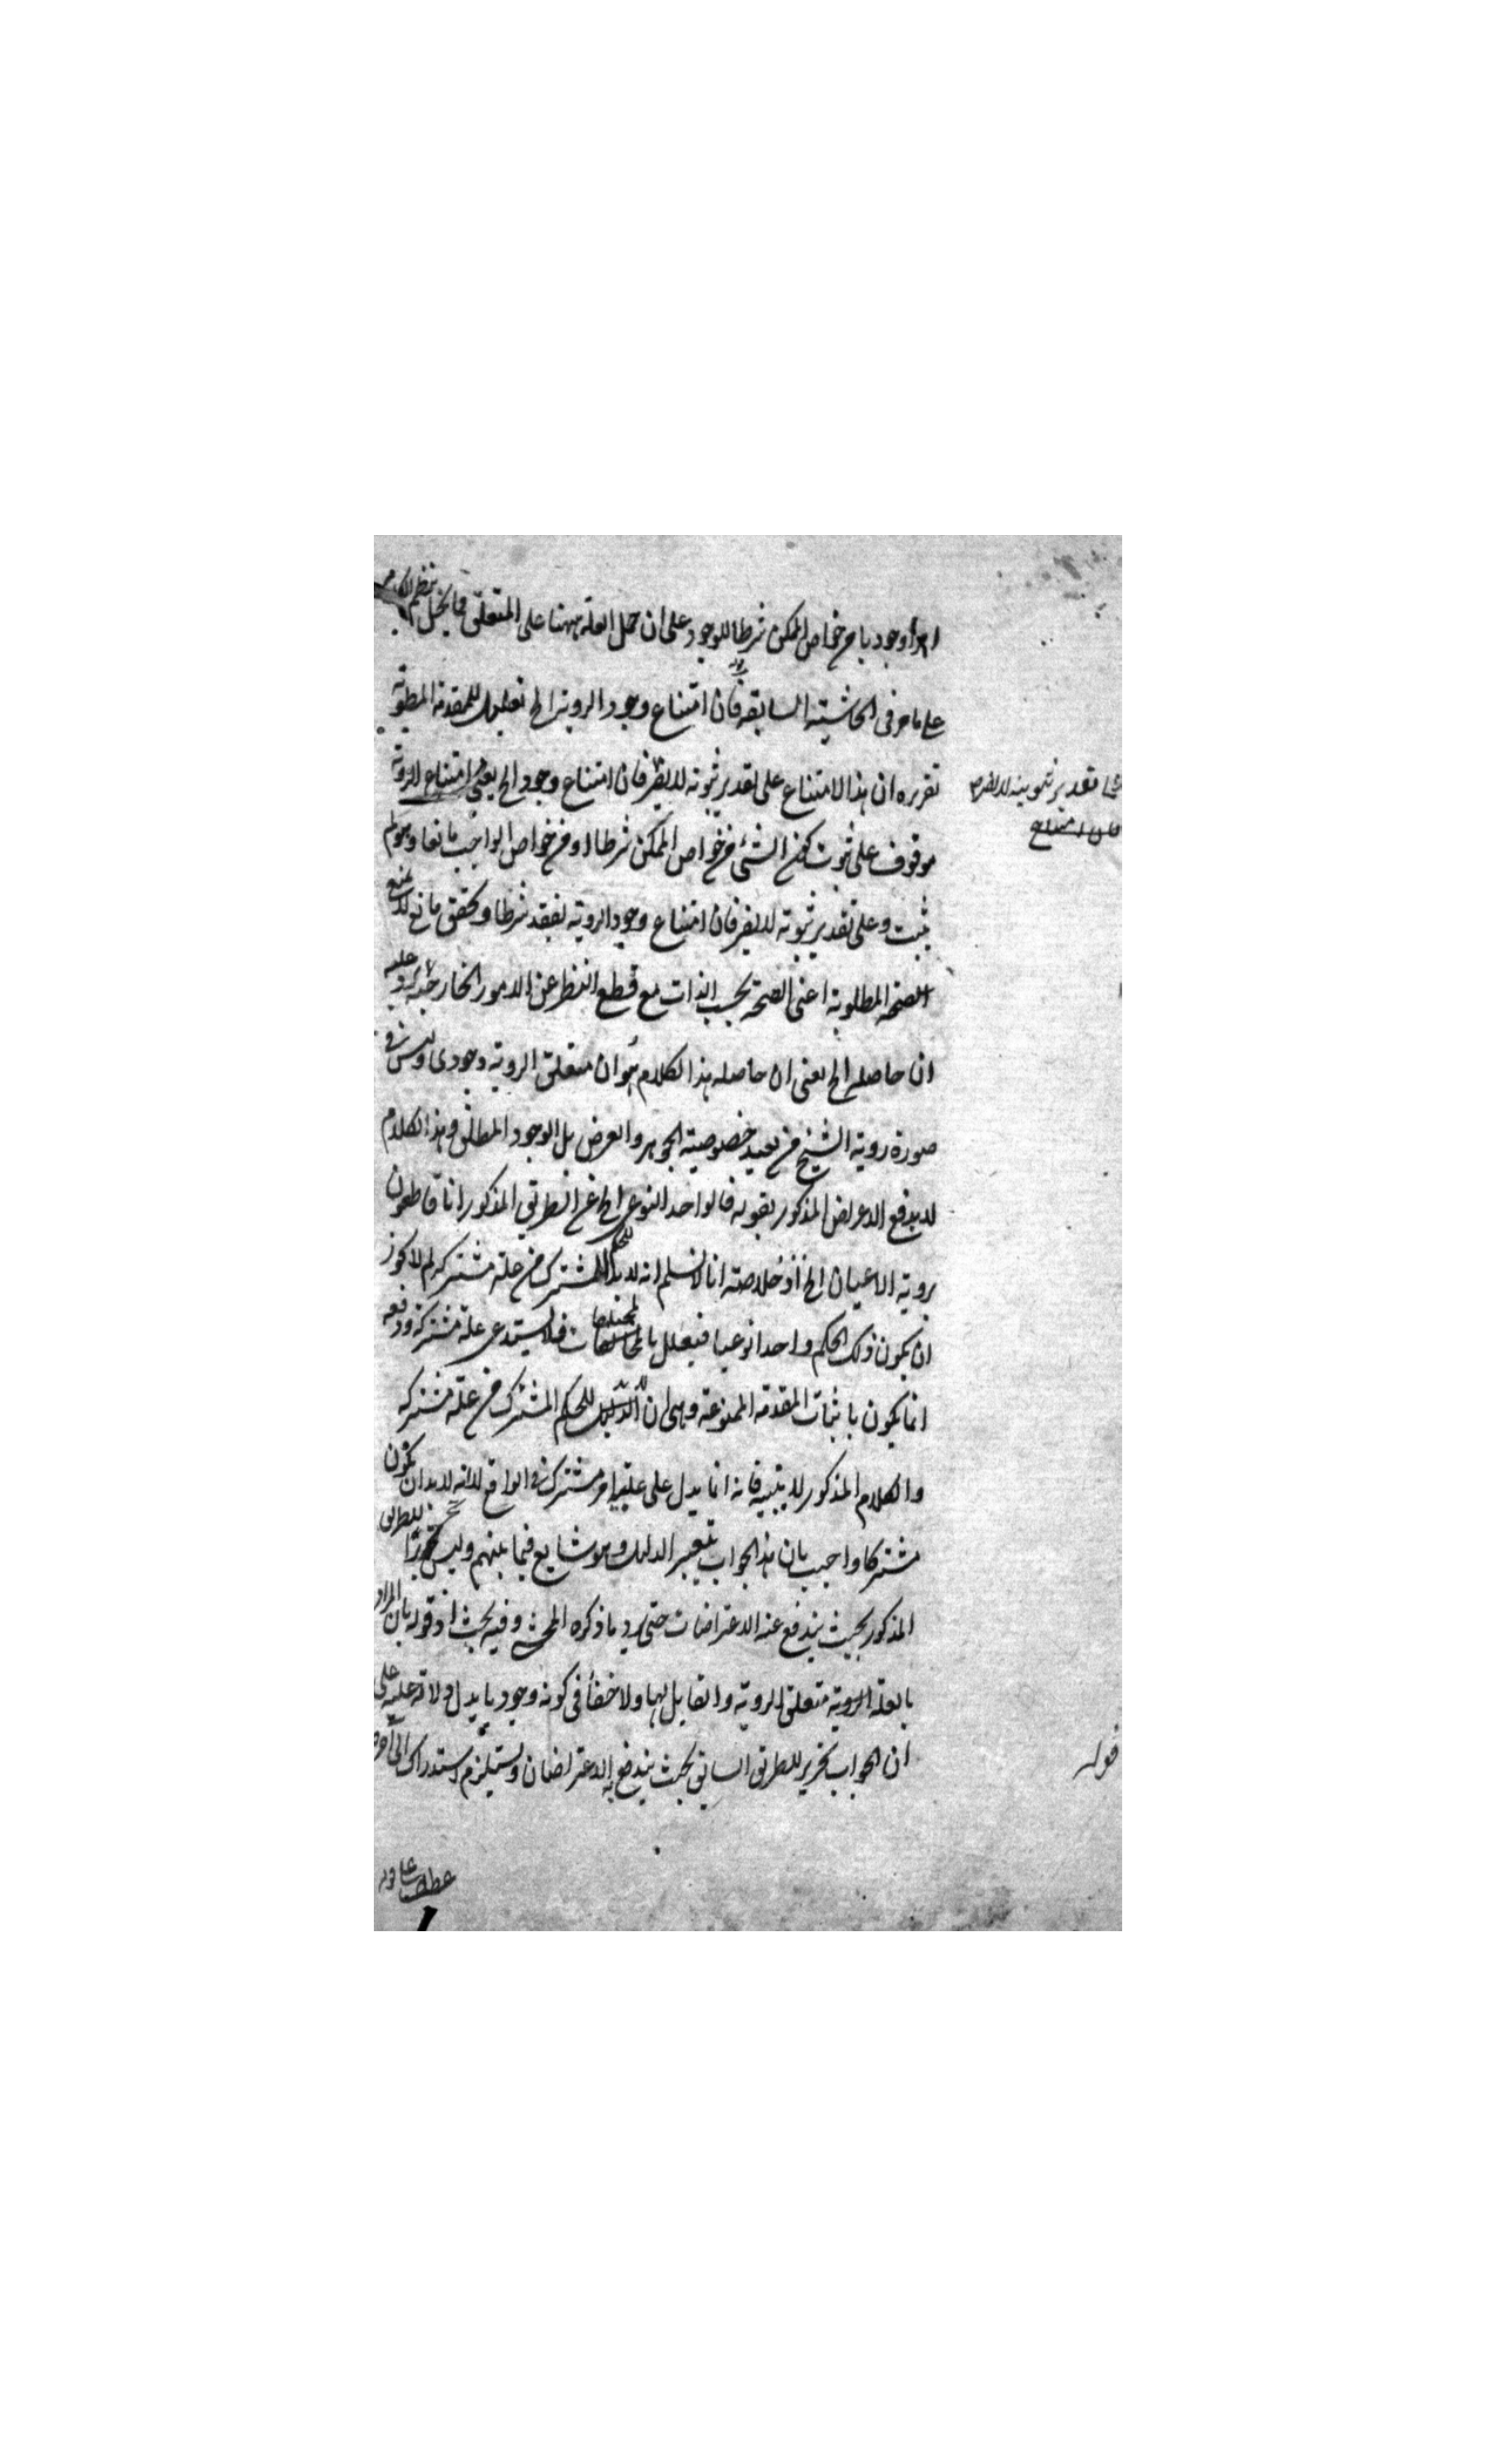 امرا وجوديا من خواص الممكن شرطا للوجود على ان حمل العلة ههنا على المتعلق مما يخل بنظم الكلام
على ما مر فى الحاشية السابقة قوله فان امتناع وجود الروية الخ تعليل للمقدمة المطوية
تقريره ان هذا الامتناع على تقدير ثبوته لا يضر فان امتناع وجود الخ يعنى امتناع الروية
على تقدير ثبوته لا يضر
فان امتناع
موقوف على ثبوت كون الشئ من خواص الممكن شرطا او من خواص الواجب مانعا وهو لم
يثبت وعلى تقدير ثبوته لا يضر فان امتناع وجود الروية لفقد شرط او تحقق مانع لا يمنع
الصحة المطلوبة اعنى الصحة بحسب الذات مع قطع النظر عن الامور الخارجية
ان حاصله الخ يعنى ان حاصله هذا الكلام هو ان متعلق الروية وجودى وليس فى
صورة روية الشبح من بعيد خصوصية الجوهر والعرض بل الوجود المطلق وهذا الكلام
لا يدفع الاعراض المذكور بقوله فالواحد النوعى الخ عن الطريق المذكور انا قاطعون
بروية الاعيان الخ اذ خلاصته انا لا نسلم انه لا بد للحكم المشترك من علة مشتركة لم لا يجوز
ان يكون ذلك الحكم واحدا نوعيا فيعلل بالمختلفات فلا يستدعى علة مشتركة ودفعه
انما يكون باثبات المقدمة الممنوعة وهى ان لا بد للحكم المشترك من علة مشتركة
والكلام المذكور لا يثبته فانه انما يدل على علية امر مشترك فى الواقع لا انه لا بد ان يكون
مشتركا واجيب بان هذا الجواب بتغيير الدليل وهو شايع فيما بينهم وليس تحريرا للطريق
المذكور بحيث يندفع عنه الاعتراضات حتى يرد ما ذكره المحشى وفيه بحث اذ قوله بان المراد
بالعلة الروية متعلق الروية والقابل لها ولا خفأ فى كونه وجوديا يدل دلالة على
قوله
ان الجواب تحرير للطريق السابق بحيث يندفع به الاعتراضات ويستلزم استدراك